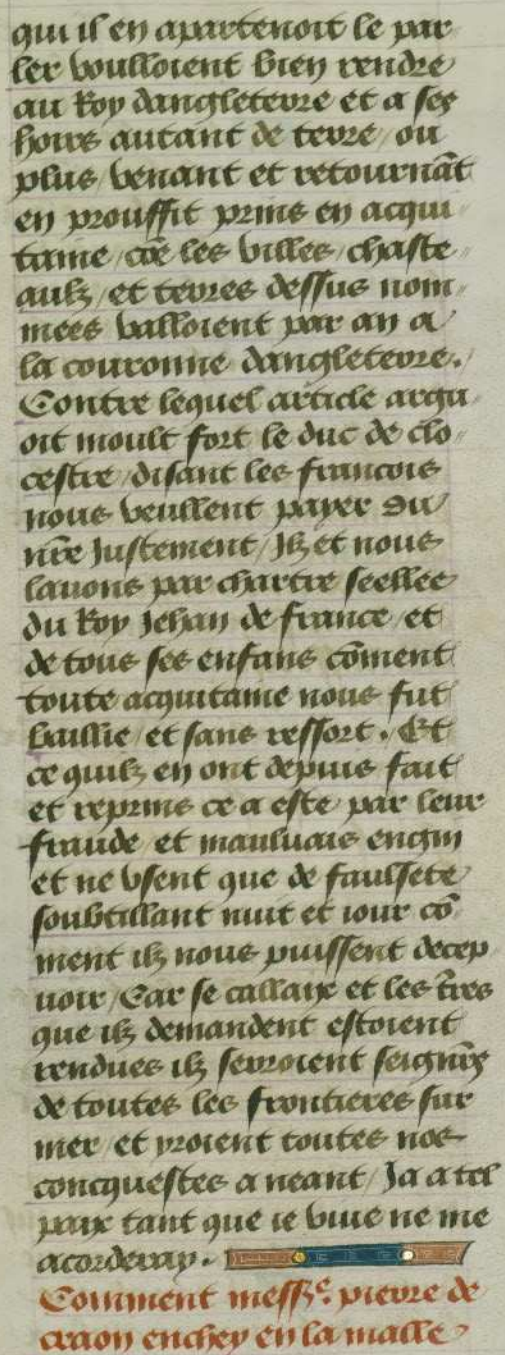 qui il en apartenoit le par
ler voulloient bien rendre
au Roy dangleterre et a ses
hoirs autant de terre / ou
plus / venant et retournãt
en prouffit prins en acqui〃
taine / cõe les villes / chaste〃
aulz / et terres dessus nom〃
mees valloient par an a
la couronne dangleterre.
Contre lequel article argu〃
oit moult fort le duc de clo〃
cestre / disant les francois
nous veullent payer du
nr̃e Justement / Ilz et nous
lauons par chartre seellee
du Roy Jehan de france / et
de tous ses enfans cõment
toute acquitaine nous fut
baillie / et sans ressort. Et
ce quilz en ont depuis fait
et reprins ce a este par leur
fraude / et mauluais engin
et ne vsent que de faulsete
soubtillant nuit et iour cõ
ment ilz nous puissent decep
uoir / Car se callaix et les t̃res
que ilz demandent estoient
rendues ilz seroient seignr̃s
de toutes les frontieres sur
mer / et yroient toutes nos
concquestes a neant / Ja a tel
paix tant que ie viue ne me
acorderay.
Comment messe. pierre de
craon enchey en la malle